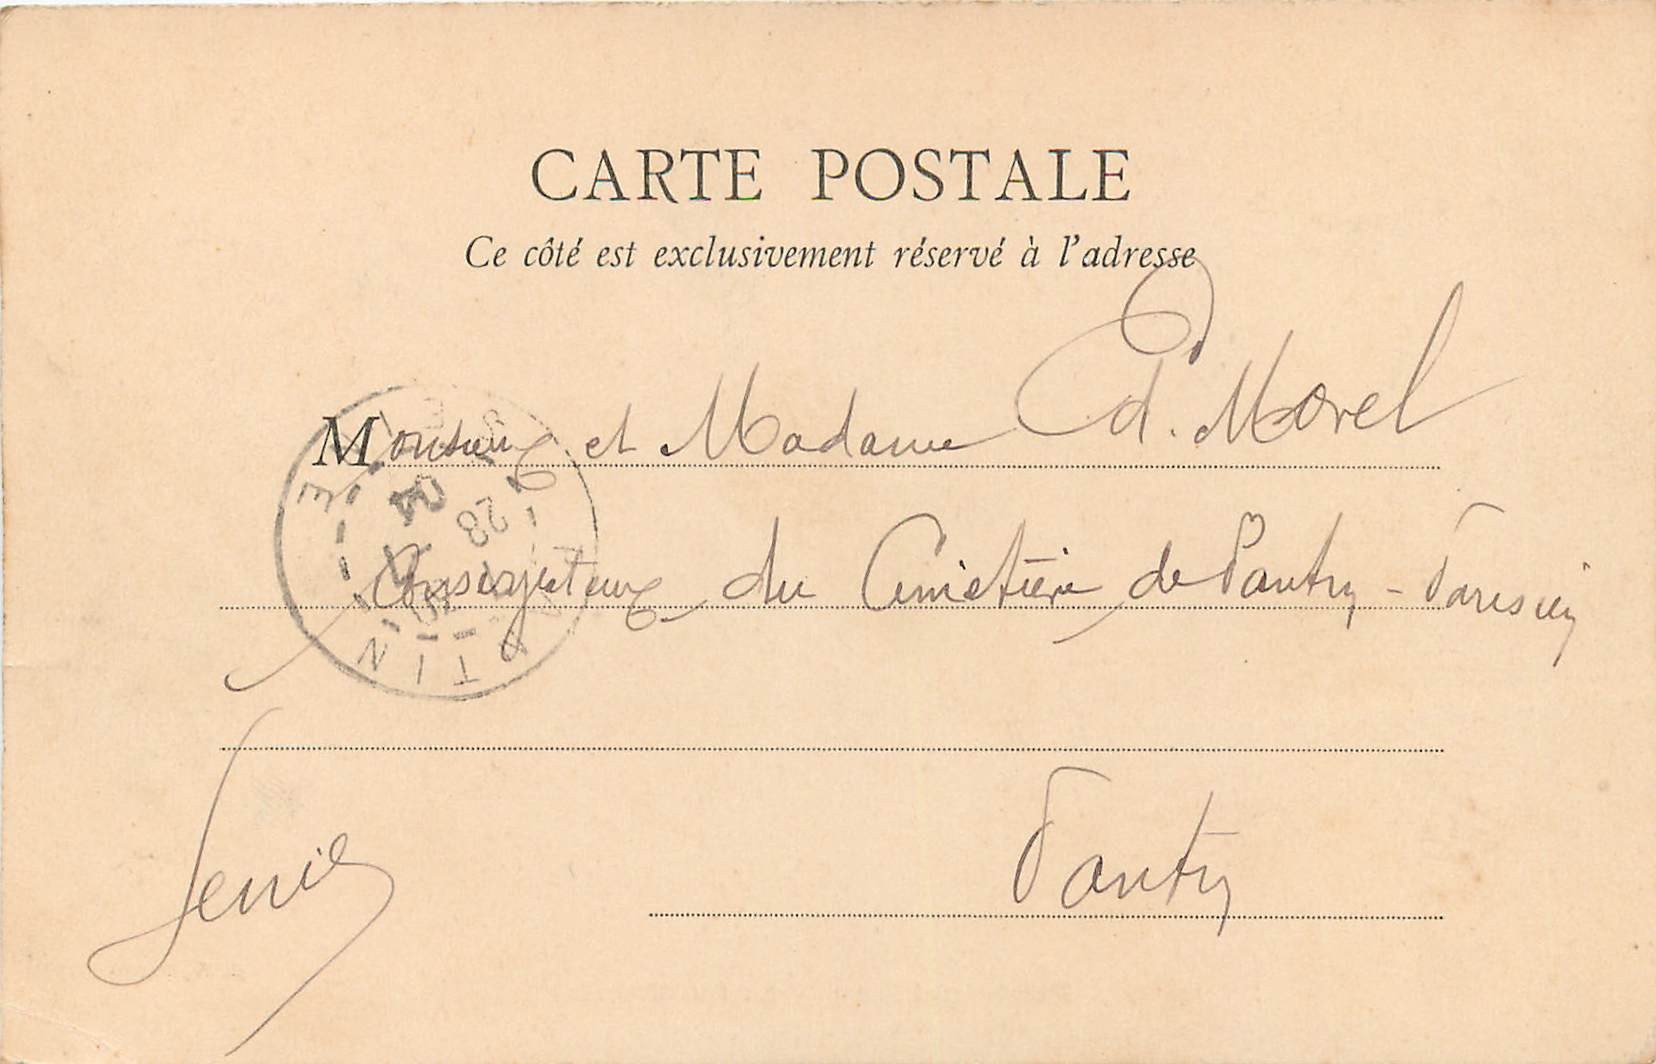 CARTE POSTALE
Ce côté est exclusivement réservé à l'adresse
Monsieur et Madame Ed. Morel
Conservateur du Cimetière de Pantin - Parisien
Pantin
Seine
PANTIN
SEINE
23
04